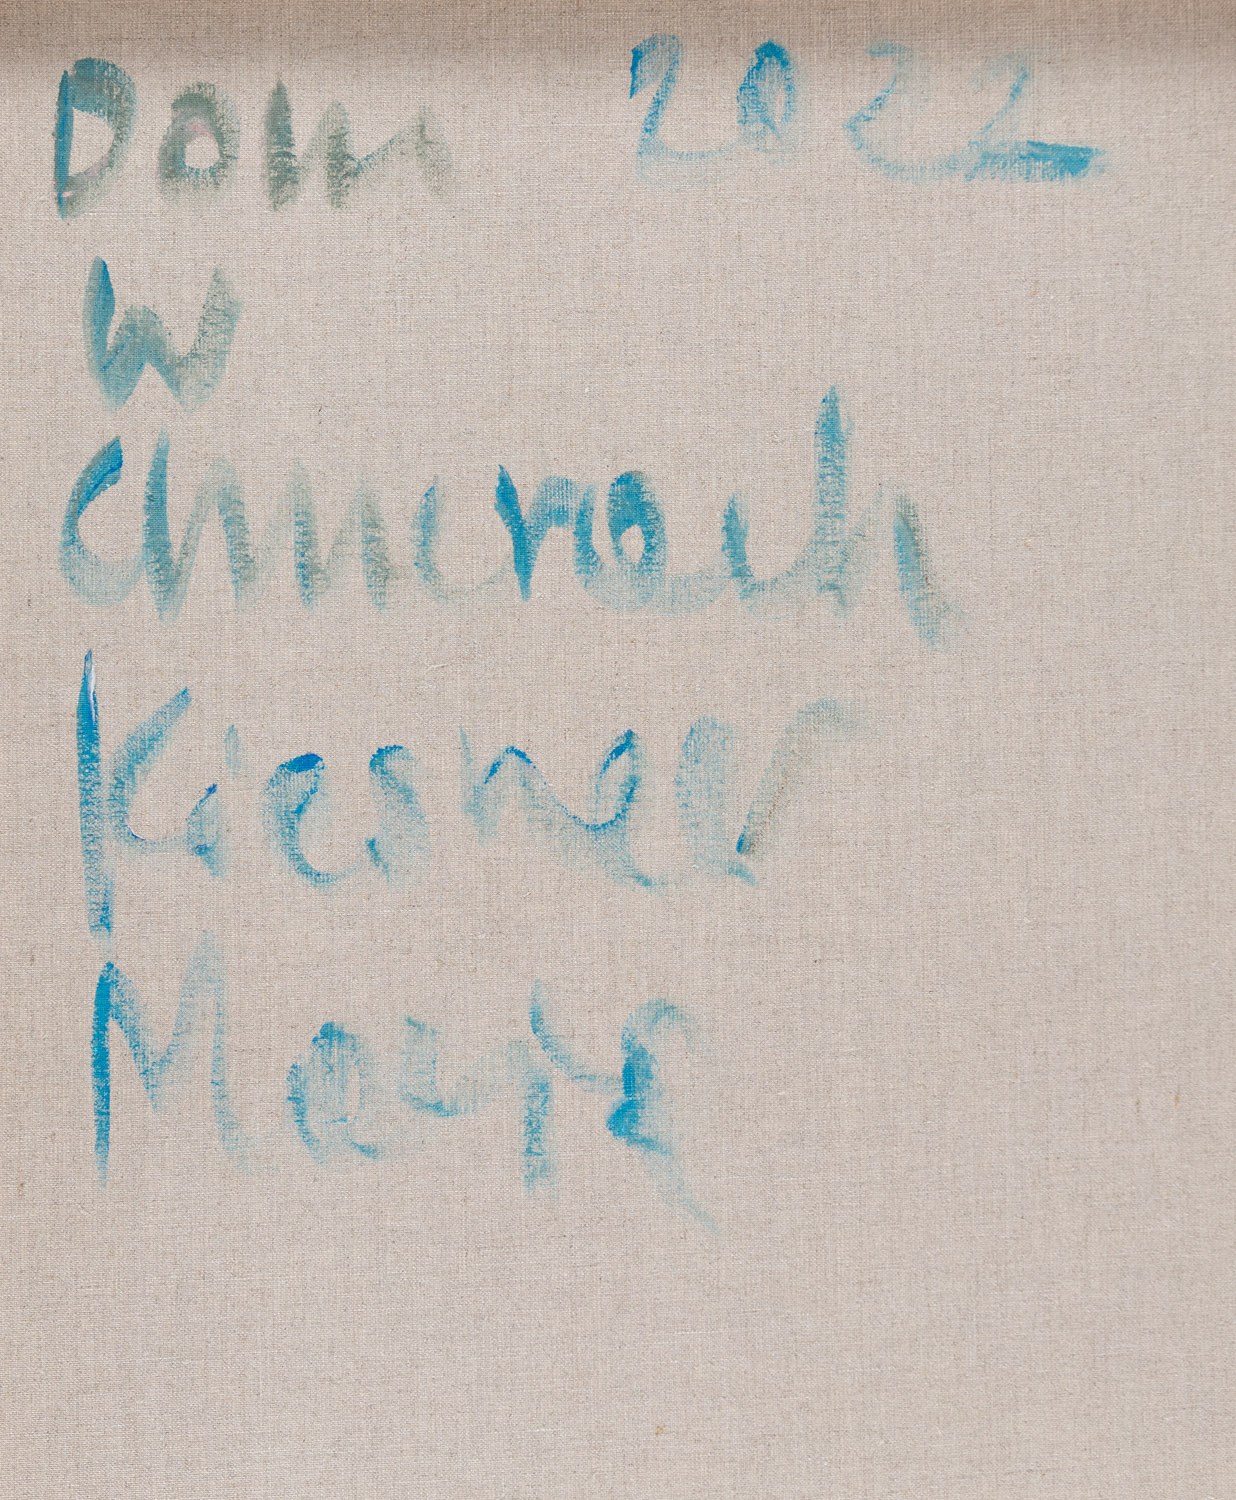 Dom 2022
W
Chmurach
Kiesner
Maryś